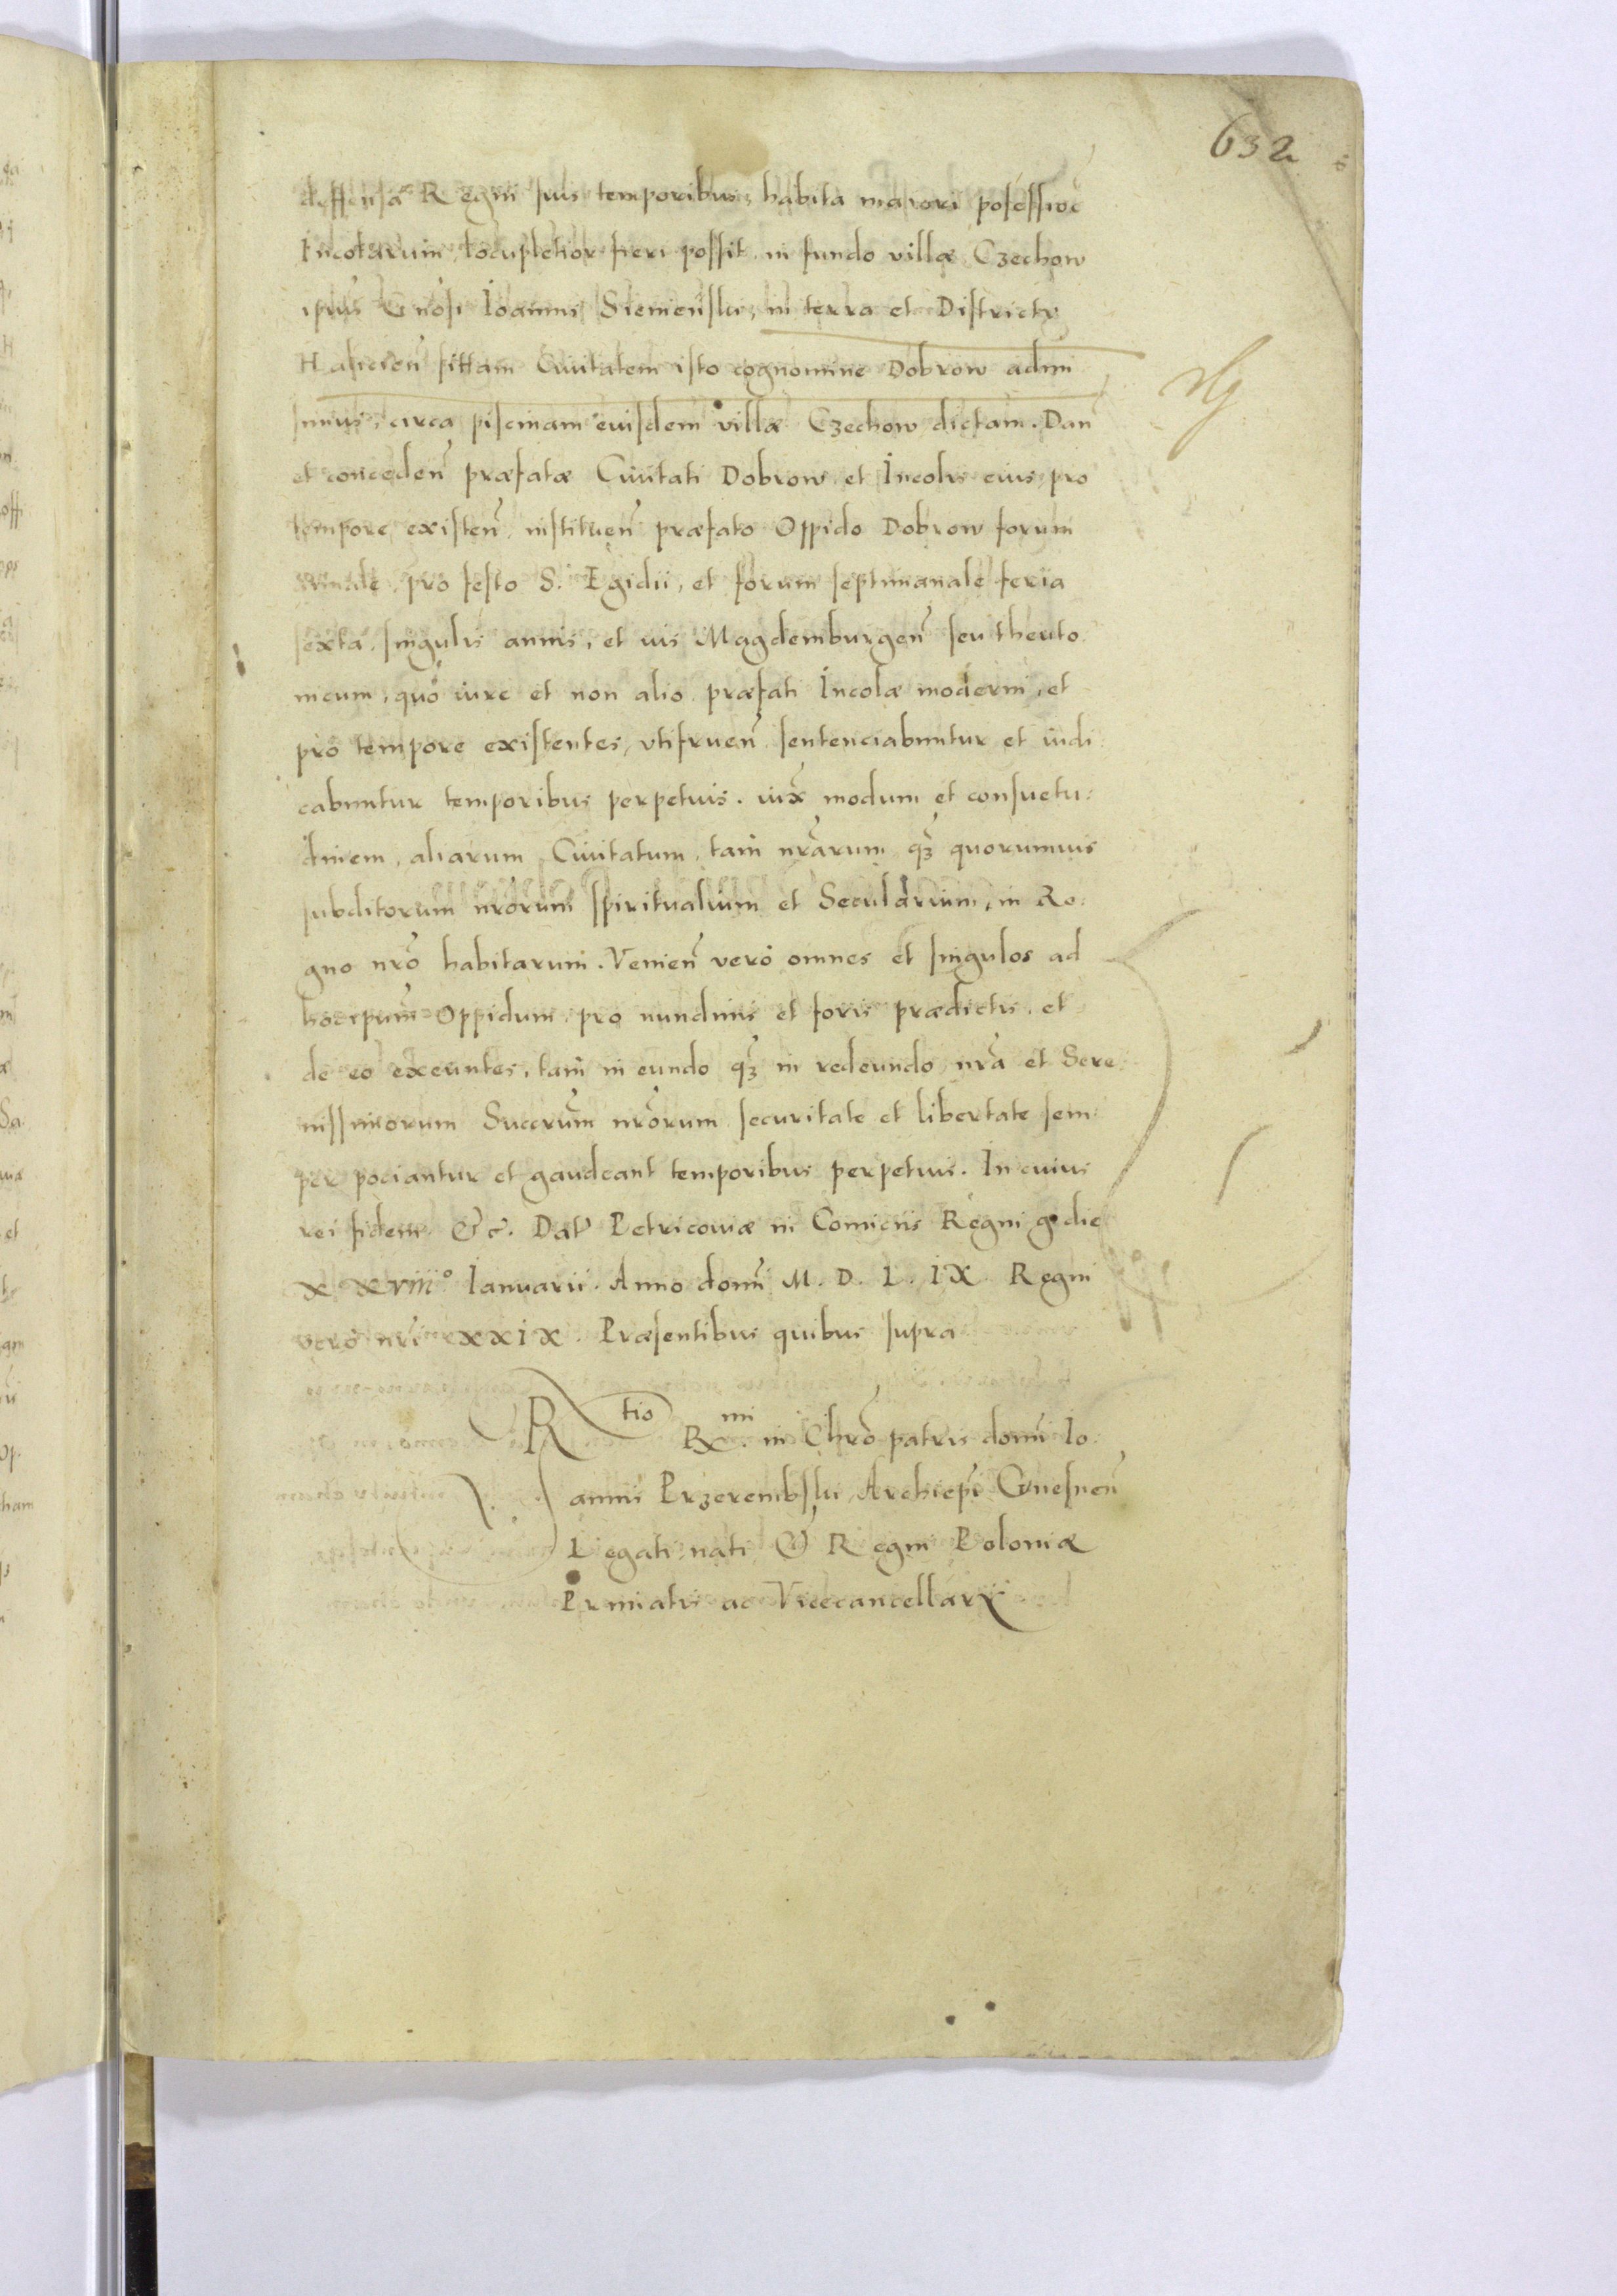 632
deffensa Regni suis temporibus, habita maiori posessioē
Incolarum, locupletior fieri possit, in fundo villæ Czechow
ipsius Gnōsi Ioannis Sieniensky, in terra et Districtu
Halicień sittam Civitatem isto cognomine Dobrow admi
simus, circa piscinam euisdem villæ Czechow dictam. Dań
et conceden̄ præfatæ Civitati Dobrow, et Incolis eius, pro
tempore existen̄, instituen̄ præfato Oppido Dobrow forum
annuale, pro festo S. Egidii, et forum septimanale feria
sexta, singulis annis, et ius Magdemburgen̄ seu theuto
nicum, quo iure et non alio præfati Incolæ moderni, et
pro tempore existentes, vtifruen̄ sentenciabuntur et iudi:
cabuntur temporibus perpetuis. iux̄ modum et consuetu:
dinem, aliarum Civitatum, tam nr̄arum q̄ꝫ quorumuis
subditorum nr̄orum spiritualium et Secularium, in Re:
gno nr̄o habitarum. Venien̄ vero omnes et singulos ad
hoc ipsum Oppidum, pro nundinis et foris prædictis, et
de eo exeuntes, tam in eundo q̄ꝫ in redeundo, nr̄a et Sere
nissimorum Succr̄um nr̄orum securitate et libertate sem:
per pociantur et gaudeant temporibus perpetuis. In cuius
rei fidem &c. Dat Petricoviæ in Comiciis Regni g. die
XXVIII° Ianuarii. Anno domi M. D. L. IX Regni
vero nr̄i XXIX. Præsentibus quibus supra
R tio Rx. mi in Chr̄o patris domi Io:
annis Przerembsky Archiep̄i Gnesnen̄
Legati nati & Regni Poloniæ
Primatis ac Vicecancellarii